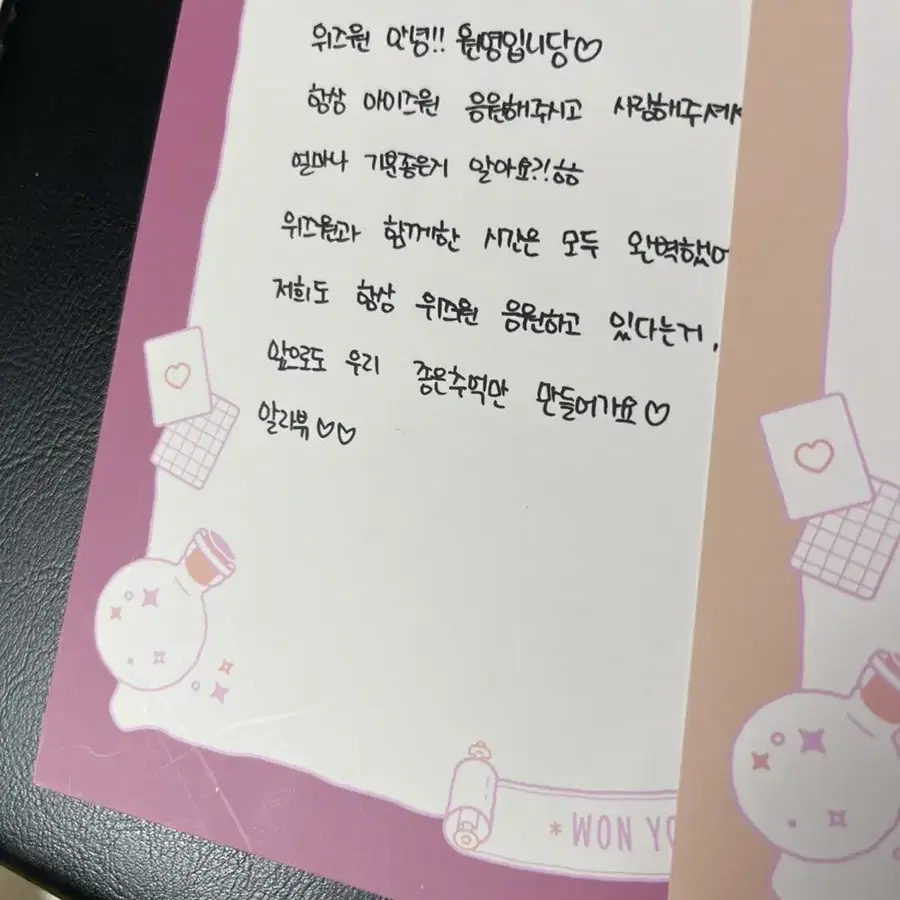 위즈원 안녕!! 원영입니당♡
항상 아이즈원 응원해주시고 사랑해주셔서
얼마나 기분좋은지 알아요?!ㅎㅎ
위즈원과 함께한 시간은 모두 완벽했어
저희도 항상 위즈원 응원하고 있다는거,
앞으로도 우리 좋은추억만 만들어가요♡
알라뷰♡♡
* WON YO